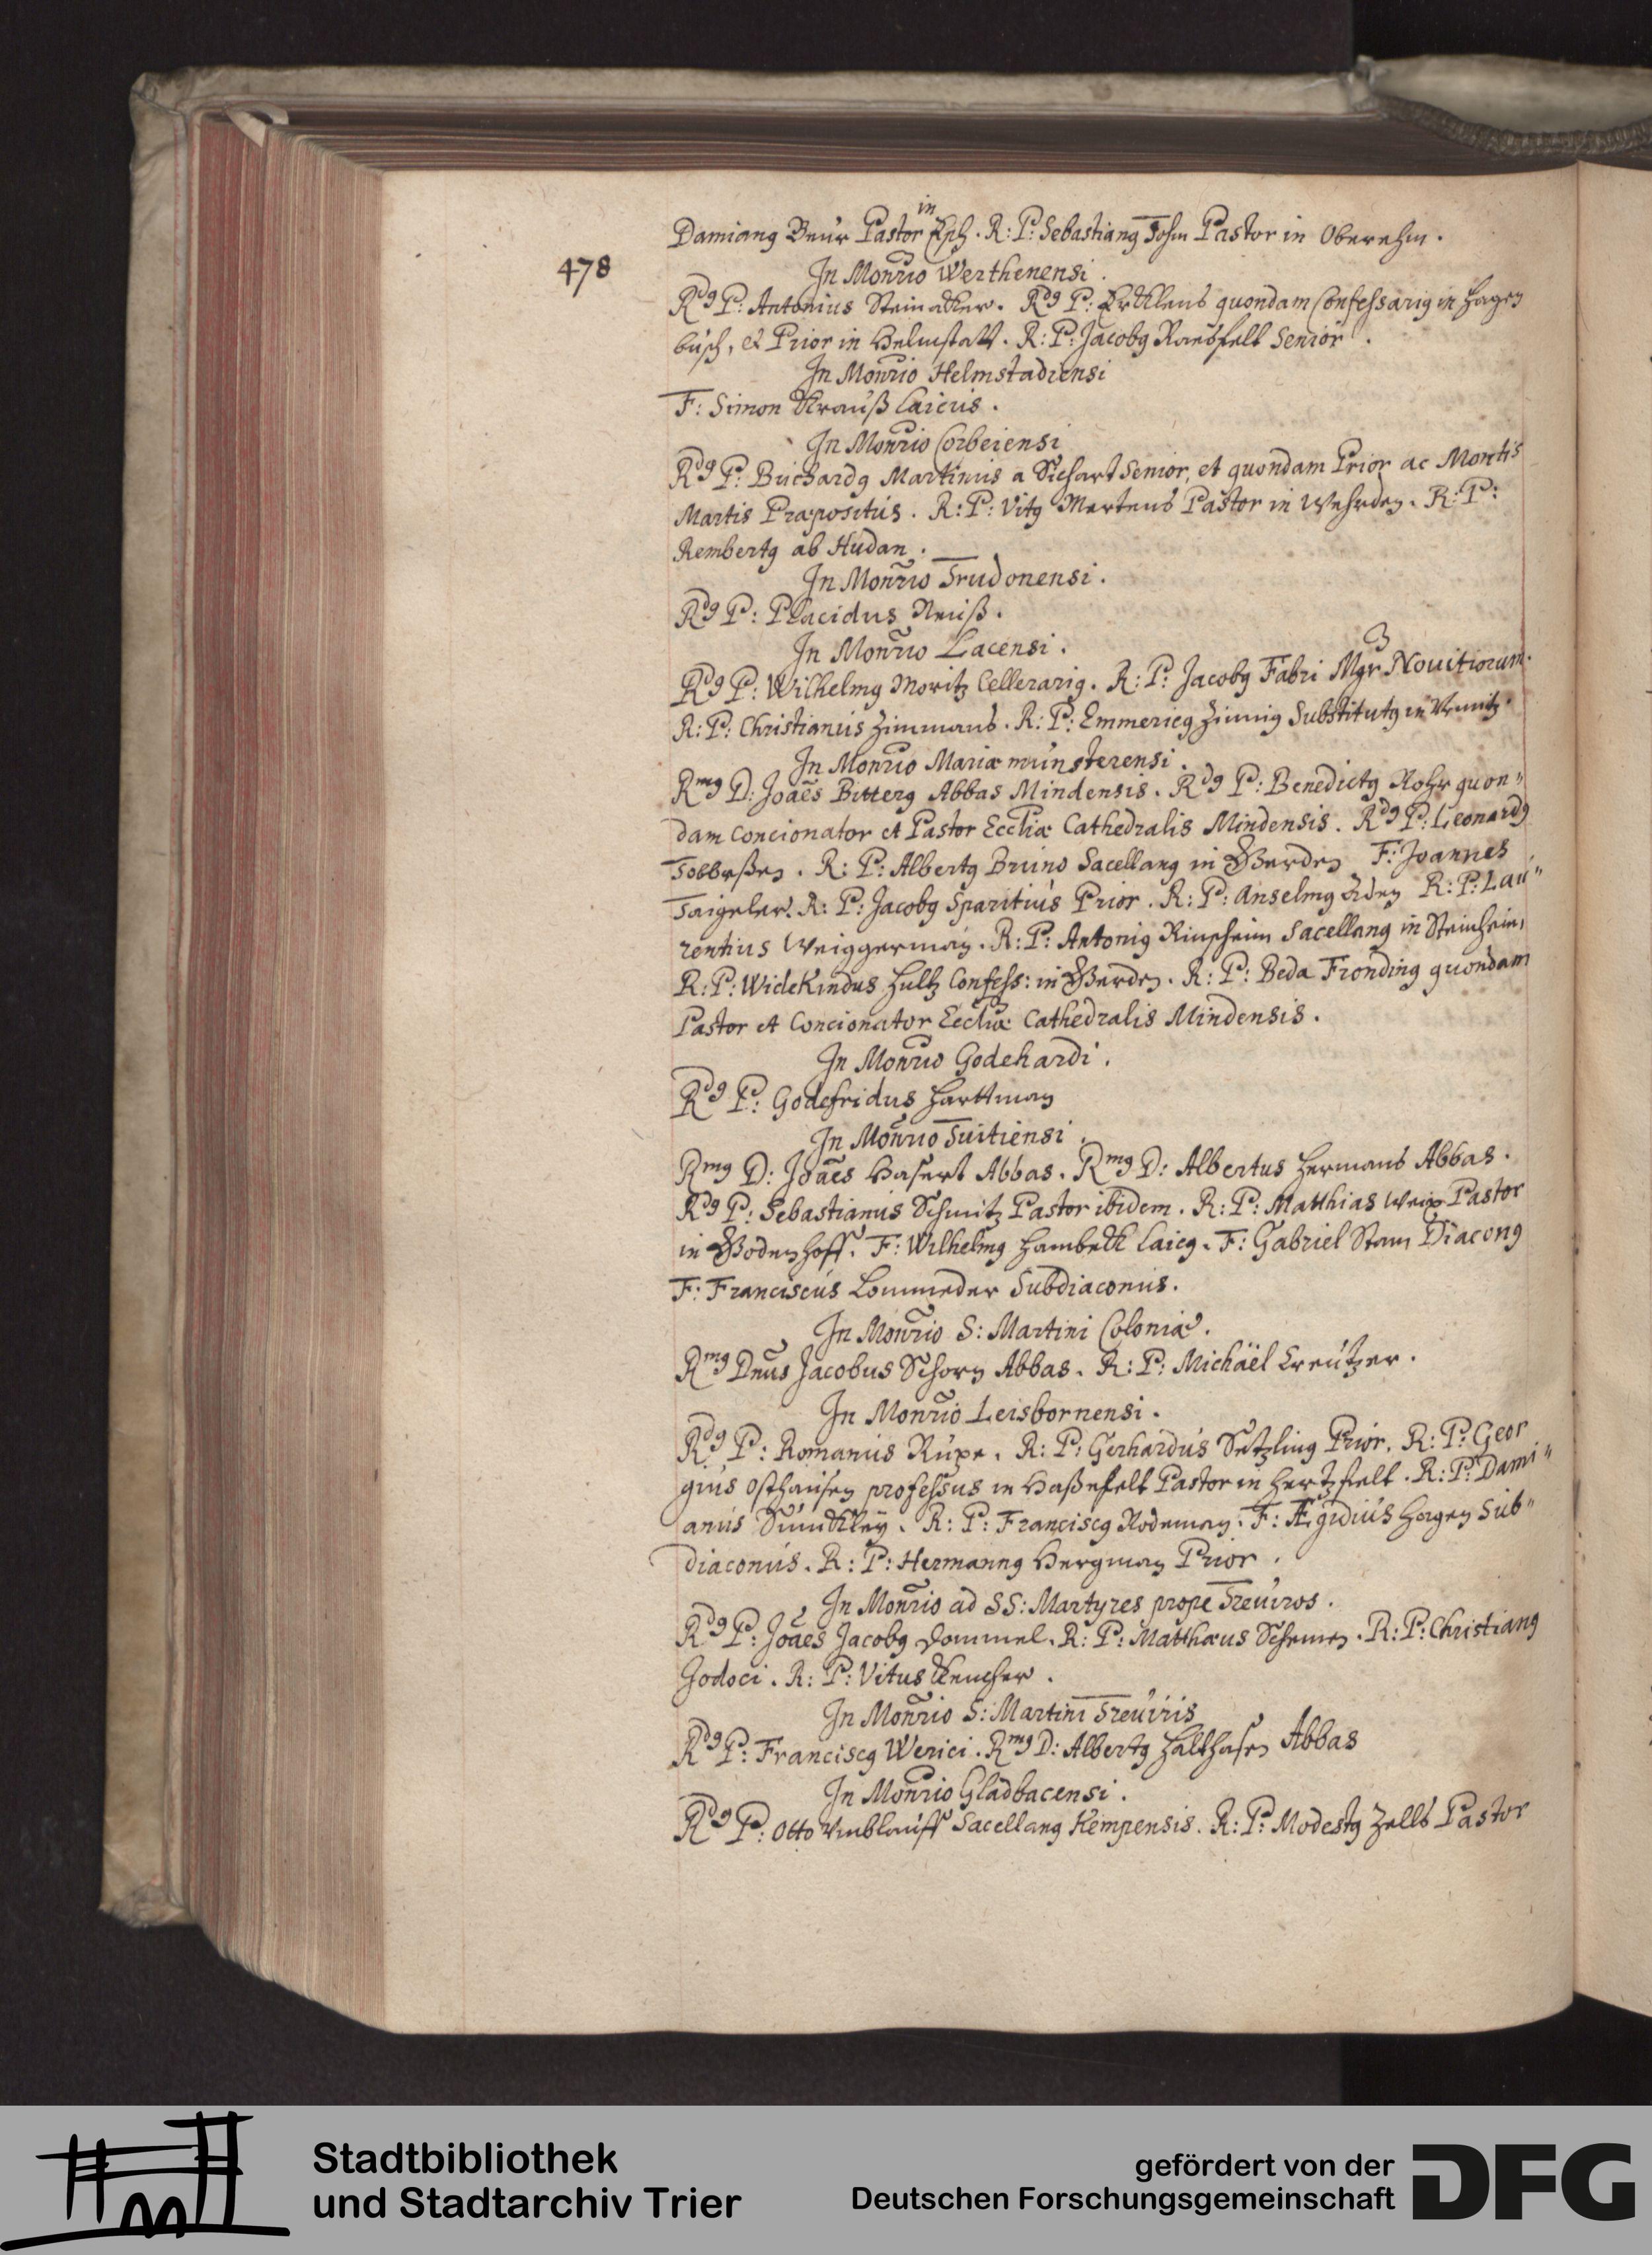 in
Damianꝰ Beur Pastor Esch. R: P: Sebastianꝰ Tohm Pastor in Oberehm.
478
In Monrio Werthenensi.
Rdꝰ P: Antonius Steinacker. Rdꝰ P: Ercklens quondam Confessariꝰ in Hagen
busch, et Prior in Helmstatt. R: P: Jacobꝰ Raesfelt Senior.
In Monrio Helmstadiensi
F: Simon Krauß Laicus.
In Monrio Corbeiensi
Rdꝰ P: Buchardꝰ Martinus a Sichart Senior, et quondam Prior ac Montis
Martis Præpositus. R: P: Vitꝰ Mertens Pastor in Wehrden. R: P:
Rembertꝰ ab Hudan.
In Monrio Trudonensi.
Rdꝰ P: Placidus Neuiß.
In Monrio Lacensi.
Rdꝰ P: Wilhelmꝰ Moritz Cellerariꝰ. R: P: Jacobꝰ Fabri Mgr Nouitiorum.
R: P: Christianus Zimmans. R: P: Emmericꝰ Zinnig Substitutꝰ in Kruitz.
In Monrio Mariæ munsterensi.
Rmꝰ D: Joaes Bitterꝰ Abbas Mindensis. Rdꝰ P: Benedictꝰ Rohr quon"
dam Concionator et Pastor Eccliæ Cathedralis Mindensis. Rdꝰ P: Leonardꝰ
R: P: Albertꝰ Bruno Sacellanꝰ in Werden F: Joannes
Taigeler. R: P: Jacobꝰ Sparitius Prior. R: P: Anselmꝰ Eden R: P: Lau"
rentius Weiggerman. R: P: Antoniꝰ Rinscheim Sacellanꝰ in Steinheim,
R: P: Widekindus Hultz Confess: in Werden. R: P: Beda Frondinꝰ quondam
Pastor et Concionator Eccliæ Cathedralis Mindensis.
In Monrio Godehardi.
Rdꝰ P: Godefridus Hartman
In Monrio Tuitiensi.
Rmꝰ D: Joaes Hasert Abbas. Rmꝰ D: Albertus Hermans Abbas.
Rdꝰ P: Sebastianus Schmitz Pastor ibidem. R: P: Matthias Weix Pastor
in Bodenhoff. F: Wilhelmꝰ Hambeck Laicꝰ. F: Gabriel Stam Diaconꝰ
F: Franciscus Lommeder Subdiaconus.
In Monrio S: Martini Coloniæ.
Rmꝰ Dnus Jacobus Schorn Abbas. R: P: Michäel Creutzer.
In Monrio Leisbornensi.
Rdꝰ P: Romanus Rupe. R: P: Gerhardus Setzling Prior. R: P: Geor
gius Osthausen professus in Haßefelt Pastor in Hertzfelt. R: P: Dami"
anus Sundkley. R: P: Franciscꝰ Rodeman. F: Ægidius Hagen Sub"
diaconus. R: P: Hermannꝰ Bergman Prior.
In Monrio ad SS: Martyres prope Treuiros.
Rdꝰ P: Joaes Jacobꝰ Dommel. R: P: Matthæus Schemen. R: P: Christianꝰ
Jodoci. R: P: Vitus Keucher.
In Monrio S: Martini Treuiris
Rdꝰ P: Franciscꝰ Werici. Rmꝰ D: Albertꝰ Halthasen Abbas
In Monrio Gladbacensi.
Rdꝰ P: Otto Umblauff Sacellanꝰ Kempensis. R: P: Modestꝰ Zells Pastor
Stadtbibliothek
und Stadtarchiv Trier
gefördert von der
Deutschen Forschungsgemeinschaft
DFG